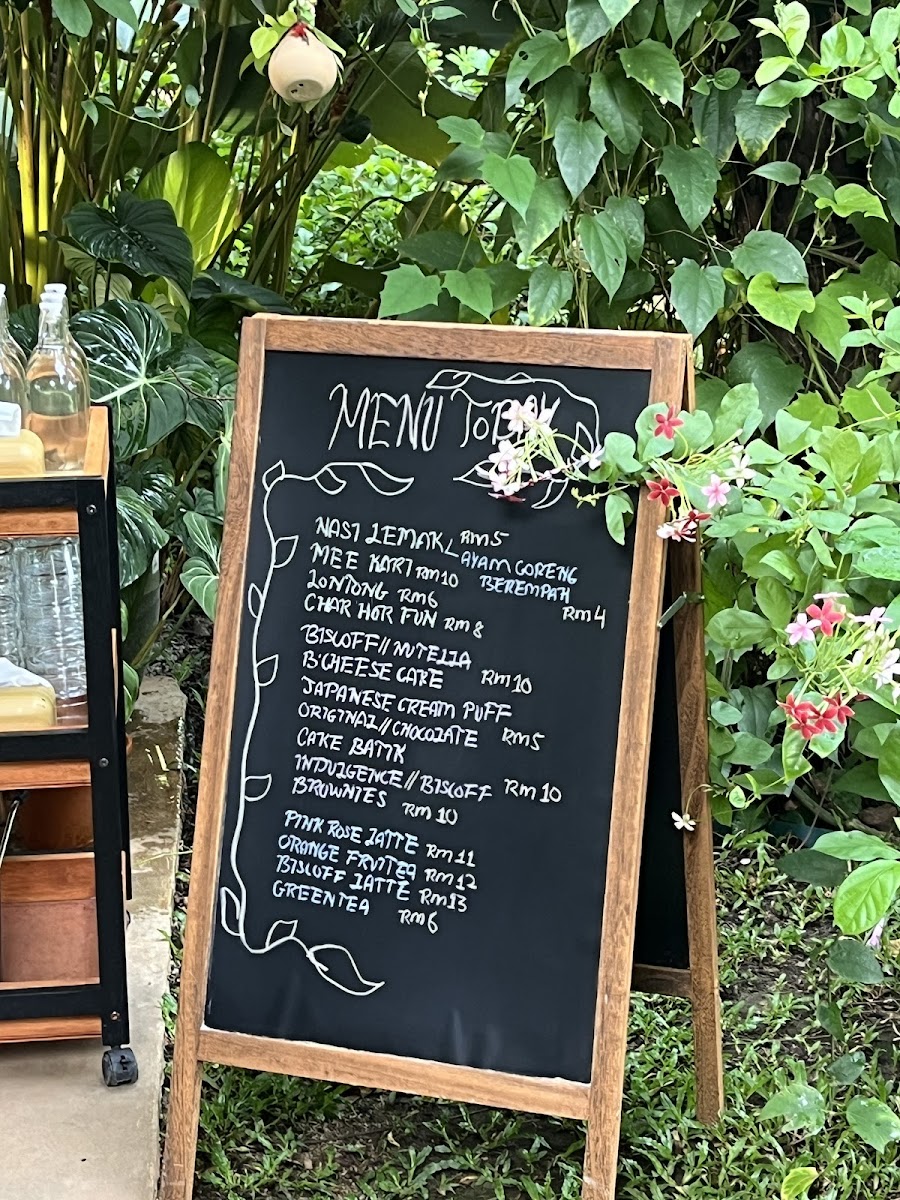 MENU TODAY
NASI LEMAK RM5
AYAM GORENG
BEREMPAH
RM4
MEE KARI RM10
LONTONG RM6
CHAR HOR FUN RM8
BISCOFF//NUTELLA
B'CHEESE CAKE RM10
JAPANESE CREAM PUFF
ORIGINAL//CHOCOLATE RM5
CAKE BATIK
INDULGENCE//BISCOFF RM10
BROWNIES RM10
PINK ROSE LATTE RM11
ORANGE FRUITEA RM12
BISCOFF LATTE RM13
GREENTEA RM6